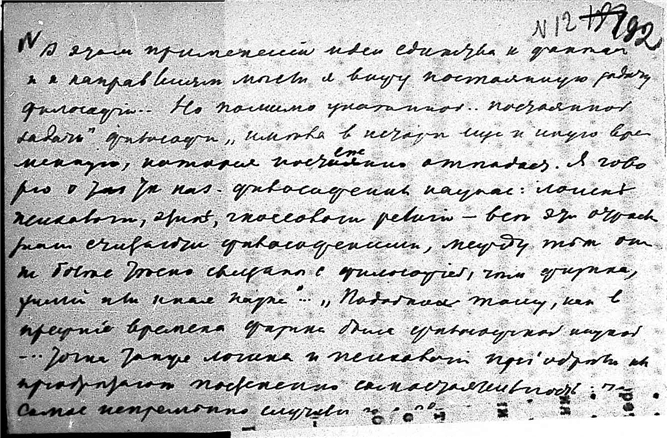 N 12 192
N В этом применении идеи единства к фактам
и в направлении мысли я вижу постоянную задачу
философии... Но помимо указанной.. постоянной
задачи" философия „имела в истории еще и иную вре
менную, которая постепенно отпадает. Я гово
рю о так наз. философских науках:
психологии, гносеологии религии — все эти
считаются философскими, между тем они
не более тесно связаны с философией, чем физика,
химия или иная наука"... „Подобно тому, как в
прежние времена физика была философской наукой
... точно также логика и психология
постепенно самостоятельность
самое непременно случится